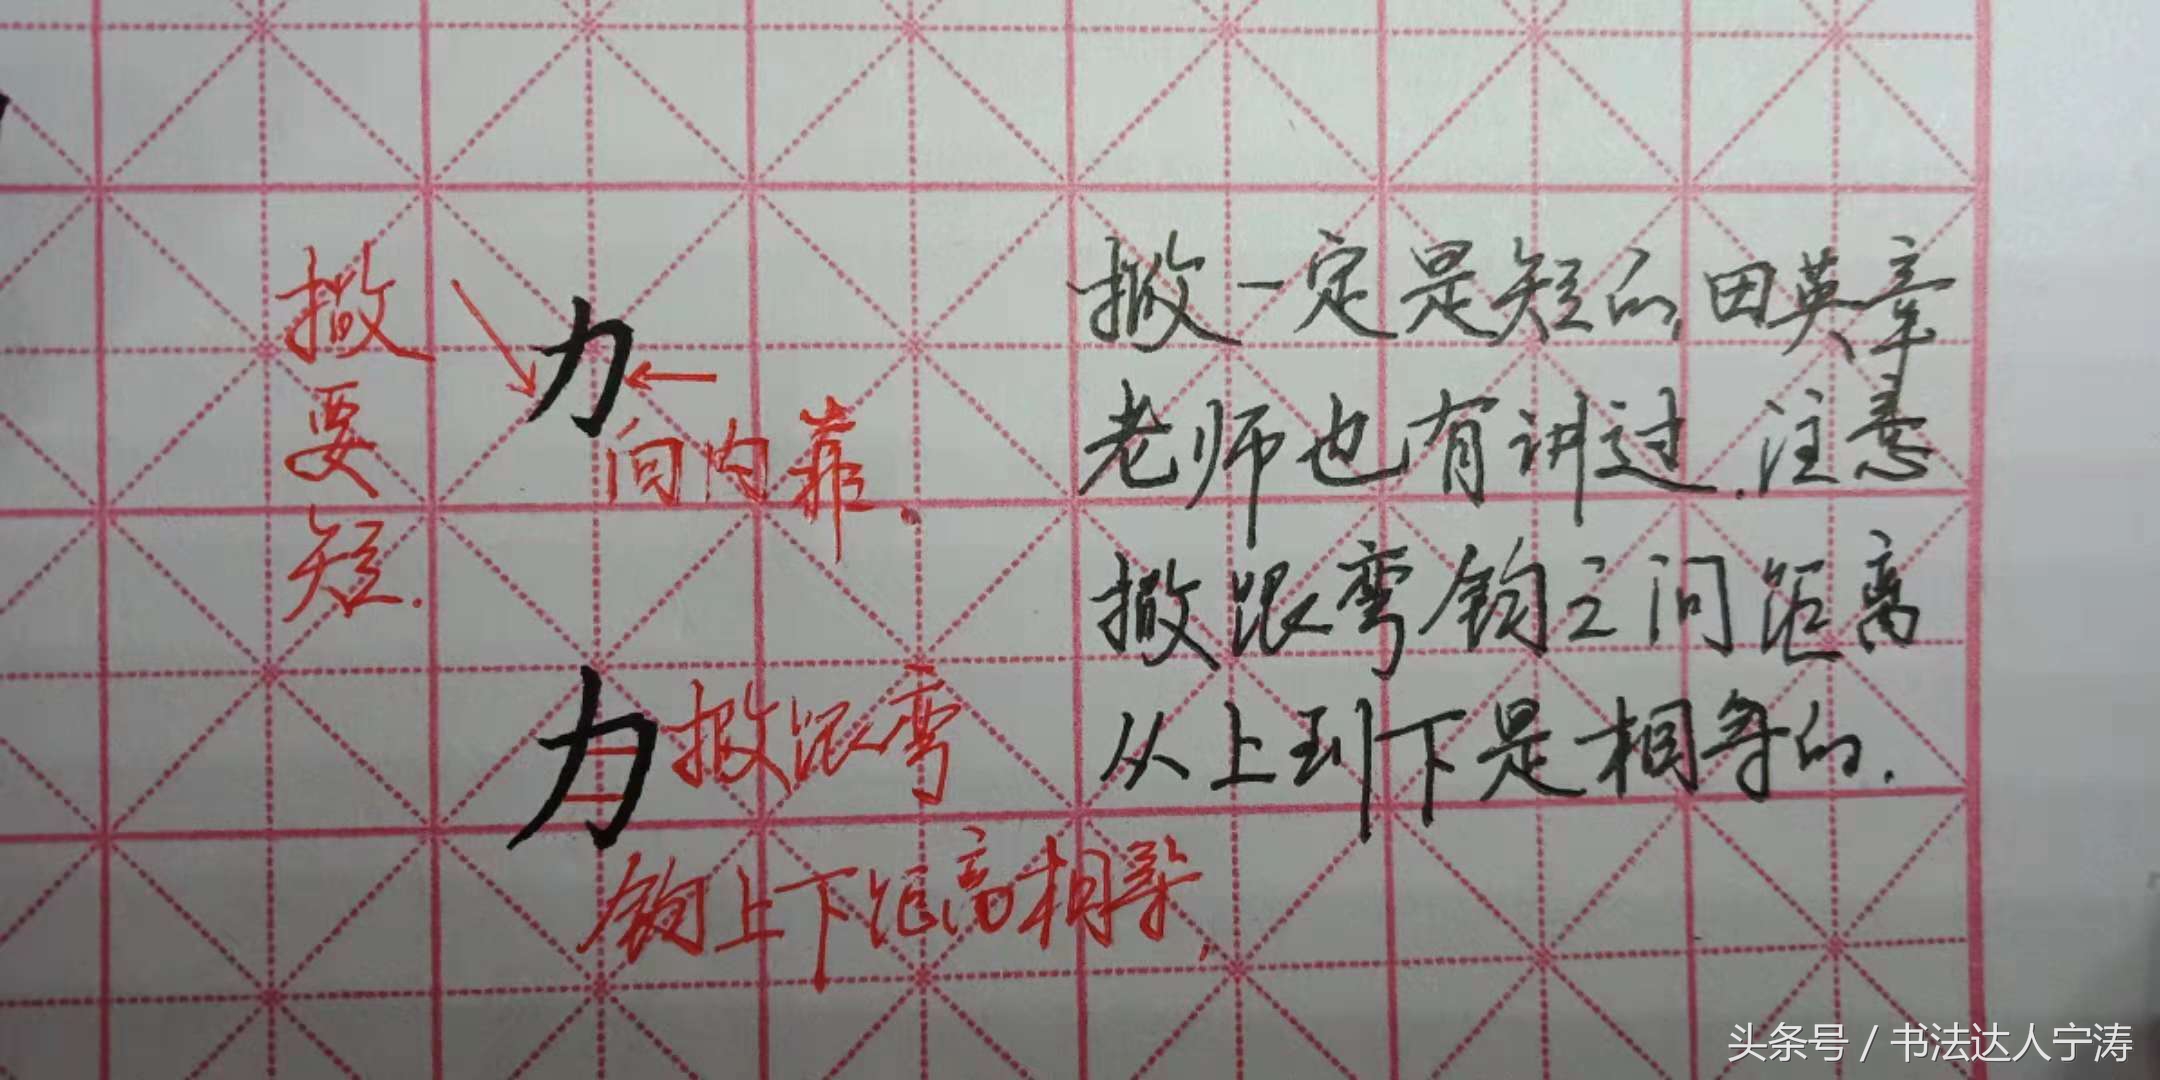 撇要短.
力
向内靠.
力
撇跟弯
钩上下距离相等,
撇一定是短的,田英章
老师也有讲过.注意
撇跟弯钩之间距离
从上到下是相等的.
头条号 / 书法达人宁涛